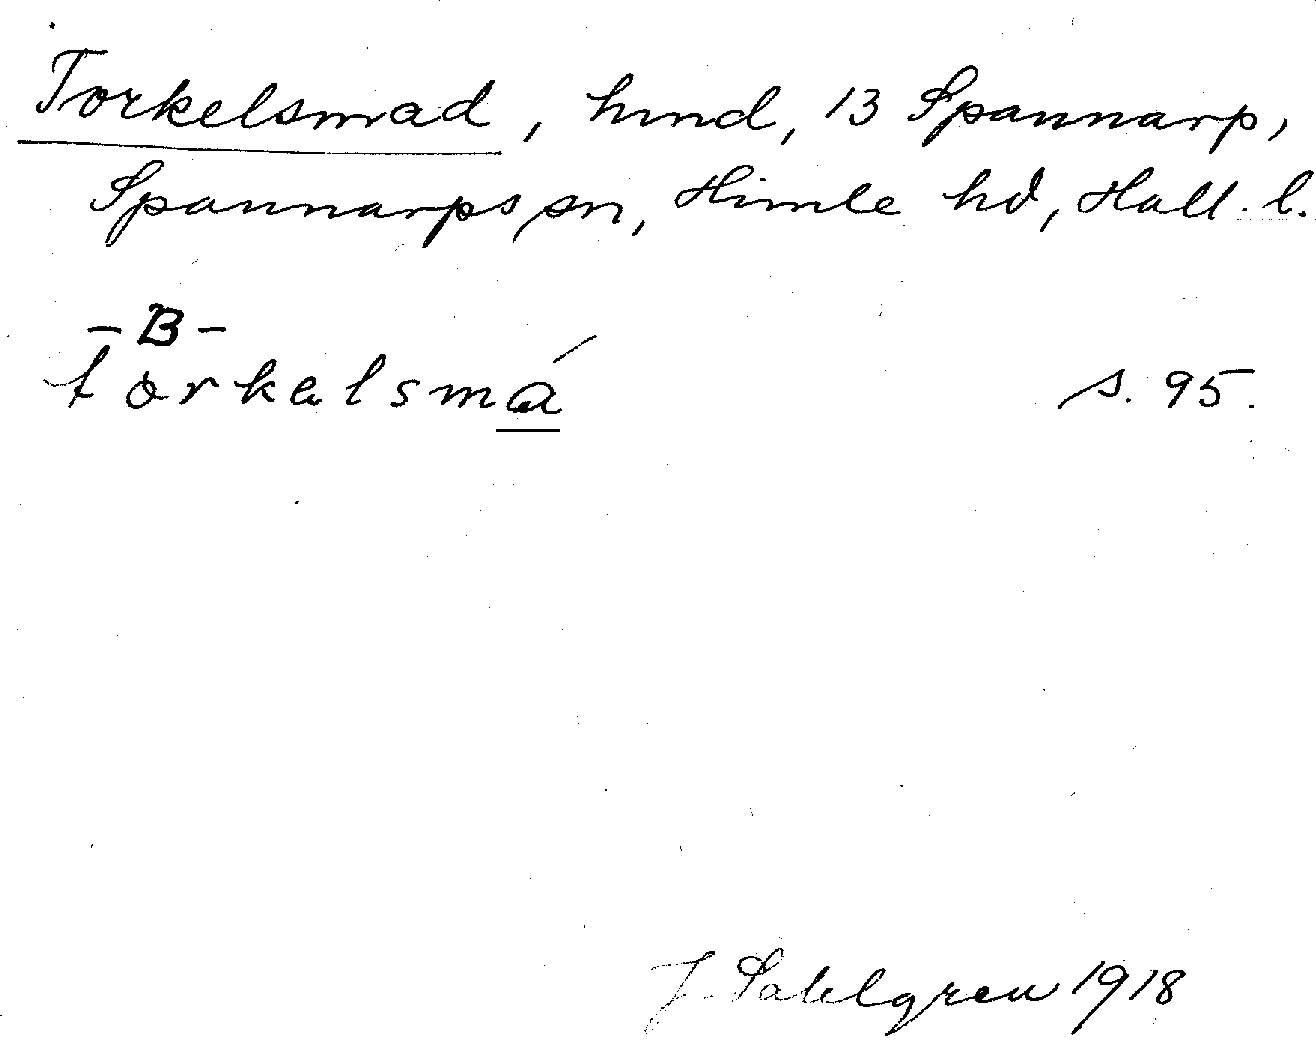 Torkelsmad, hmd, 13 Spannarp,
Spannarps sn, Himle hd, Hall. l.
- B -
torkalsmá s. 95.
J. Sahlgren 1918